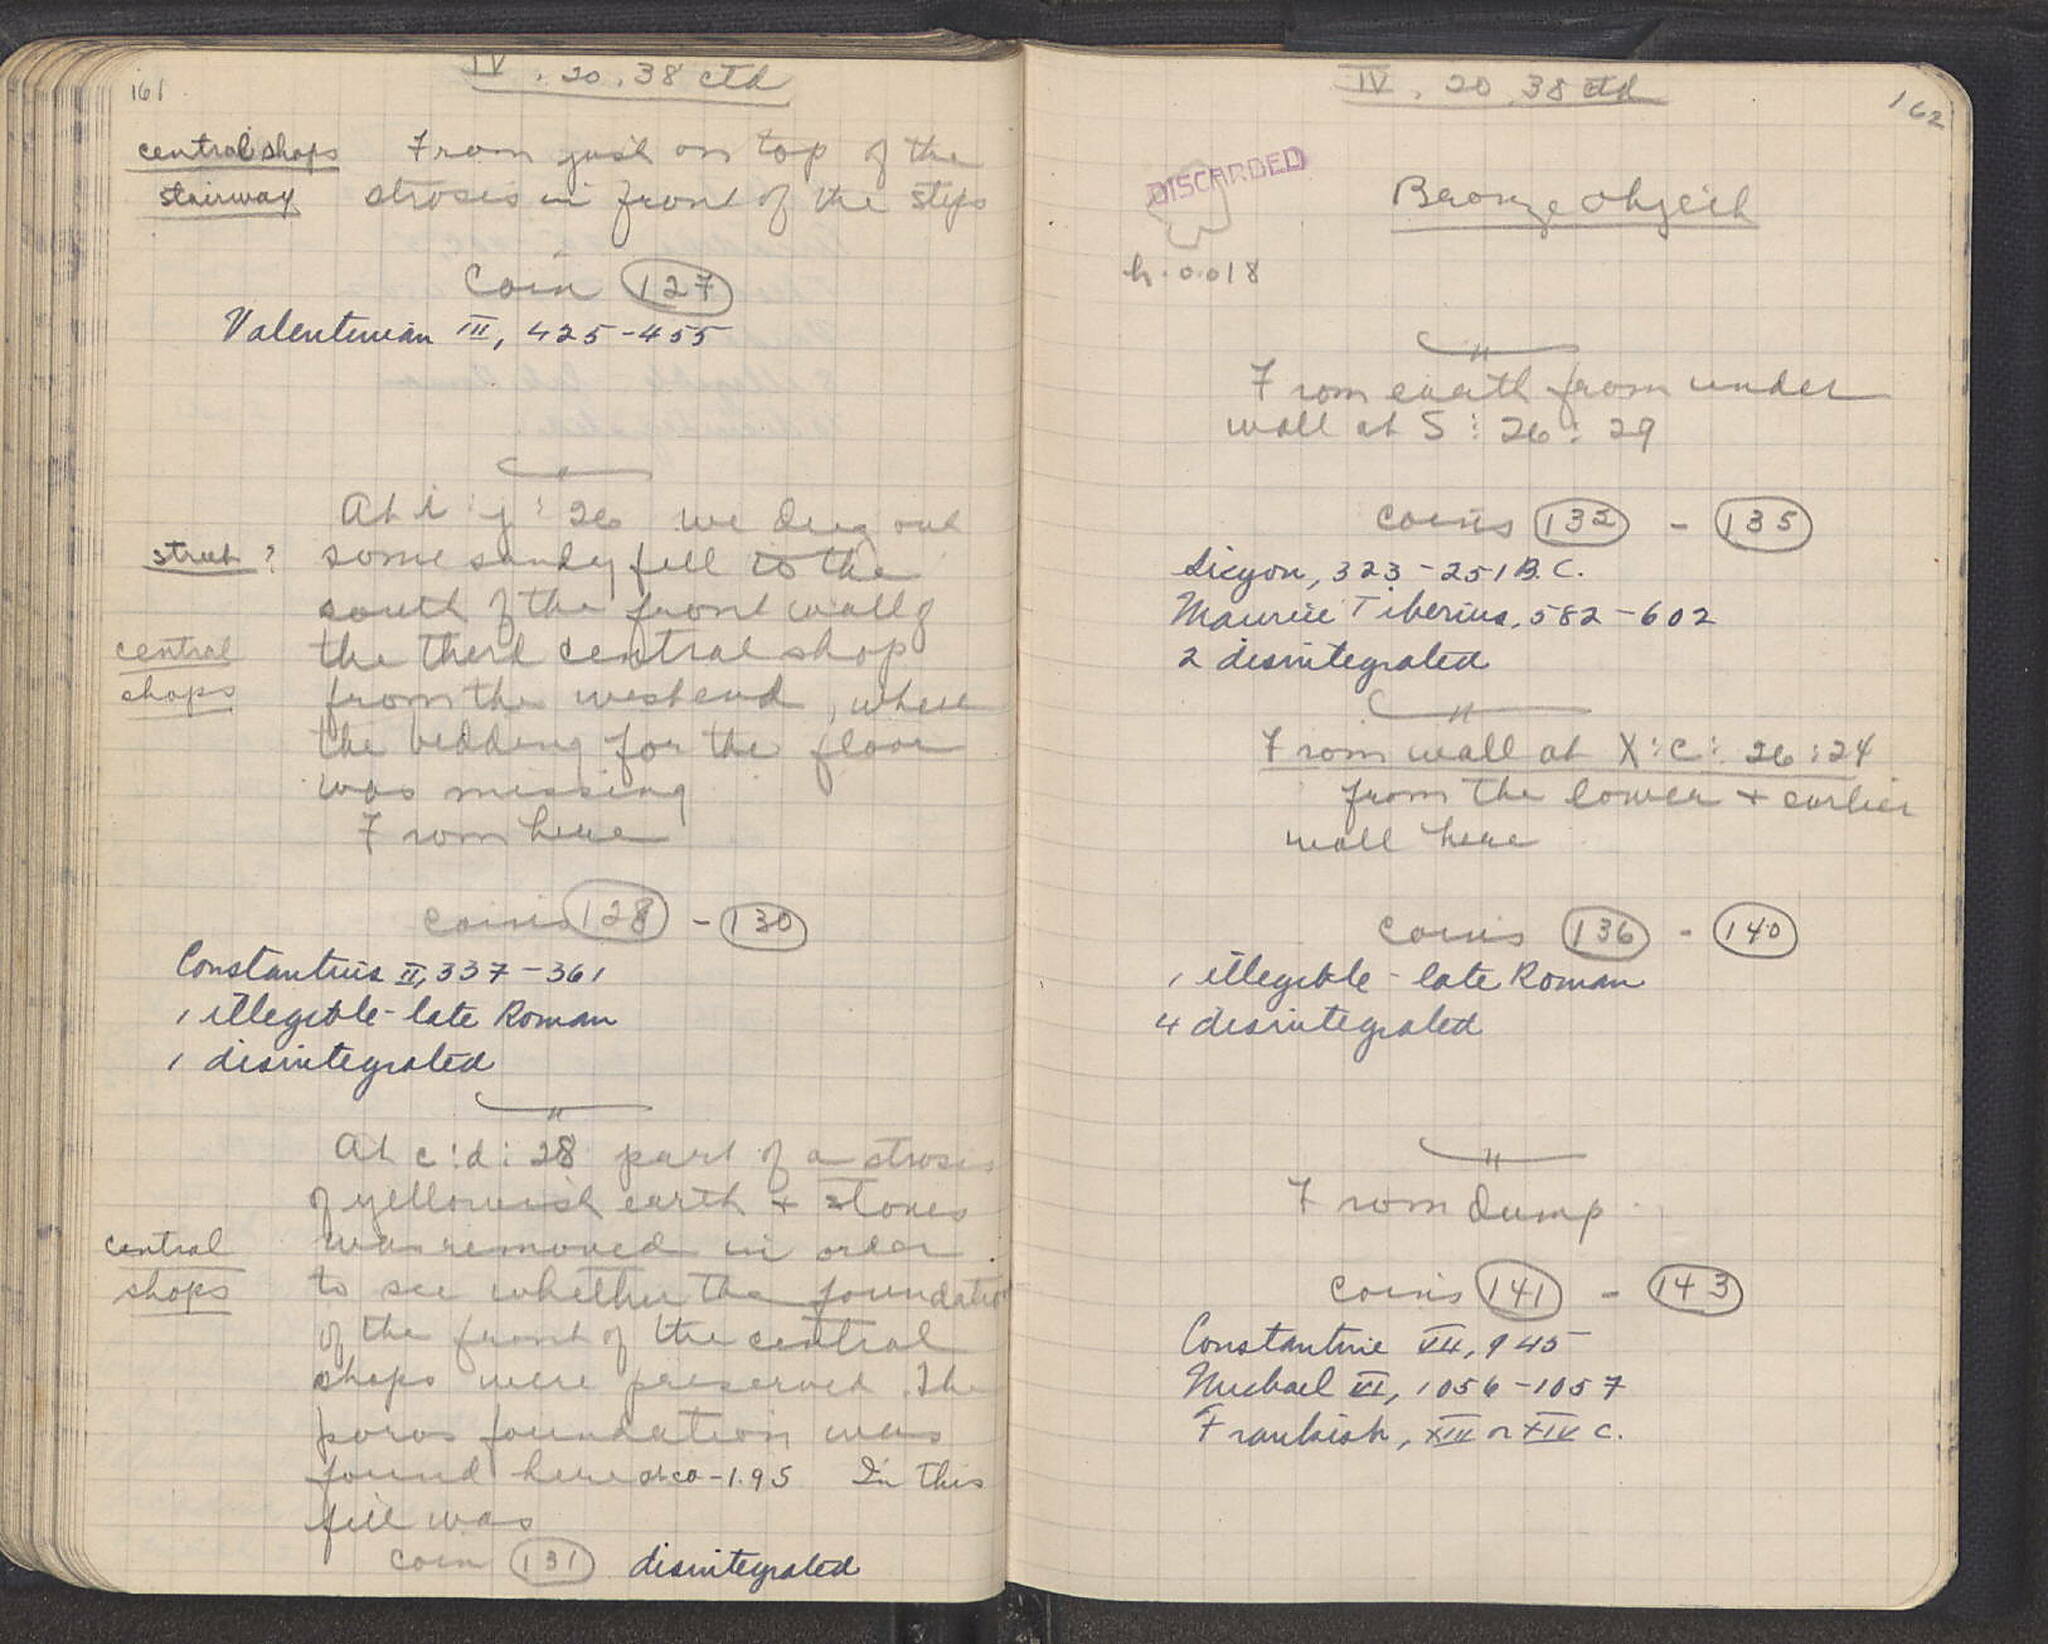 161
IV . 20 . 38 ctd
central shops
stairway
From just on top of the
strosis in front of the steps
Coin 127
Valentinian III, 425-455
street ?
At i : j : 26 we dug out
some sandy fill to the
south of the front wall of
central
shops
the third central shop
from the west end, where
the bedding for the floor
was missing
From here
coins 128 - 130
Constantius II, 337-361
1 illegible - late Roman
1 disintegrated
central
shops
At c : d : 28 part of a strosis
of yellowish earth + stones
was removed in order
to see whether the foundation
of the front of the central
shops were preserved. The
poros foundation was
found here at ca -1.95 In this
fill was
coin 131 disintegrated
IV . 20 . 38 ctd
162
DISCARDED
Bronze object
h. 0.018
From earth from under
wall at S : 26 : 29
coins 132 - 135
Sicyon, 323-251 B.C.
Maurice Tiberius, 582-602
2 disintegrated
From wall at X : C : 26 : 24
from the lower + earlier
wall here
coins 136 - 140
1 illegible - late Roman
4 disintegrated
From dump
coins 141 - 143
Constantine VII, 945
Michael VI, 1056-1057
Frankish, XIII or XIV c.